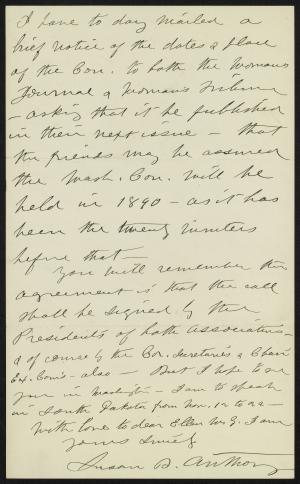 I have to day mailed a
brief notice of the dates & place
of the Con. to both the Woman's
Journal & Woman's Tribune
- asking that it be published
in their next issue - that
the friends may be assured
the Wash. Con. will be
held in 1890 - as it has
been the twenty winters
before that -
You will remember the
agreement is that the call
shall be signed by the
Presidents of both Associations -
& of course by the Cor. Secretaries & Chair
Ex. Com's - also - But I hope to see
you in Washington - I am to speak
in South Dakota from Nov. 12 to
With love to dear Ellen W. G. I am
yours Sincely
Susan B. Anthony